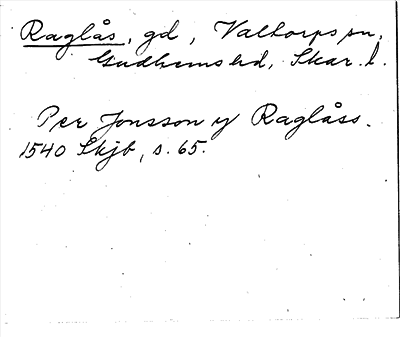 Raglås, gd, Valtorps sn,
Gudhems hd, Skar. l.
Per Jonsson y Raglåss.
1540 Skjb, s. 65.